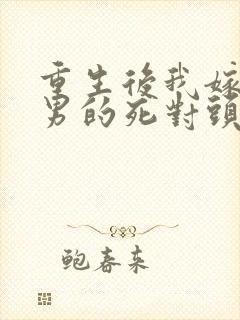 重生後我嫁
男的死對頭
鮑春來